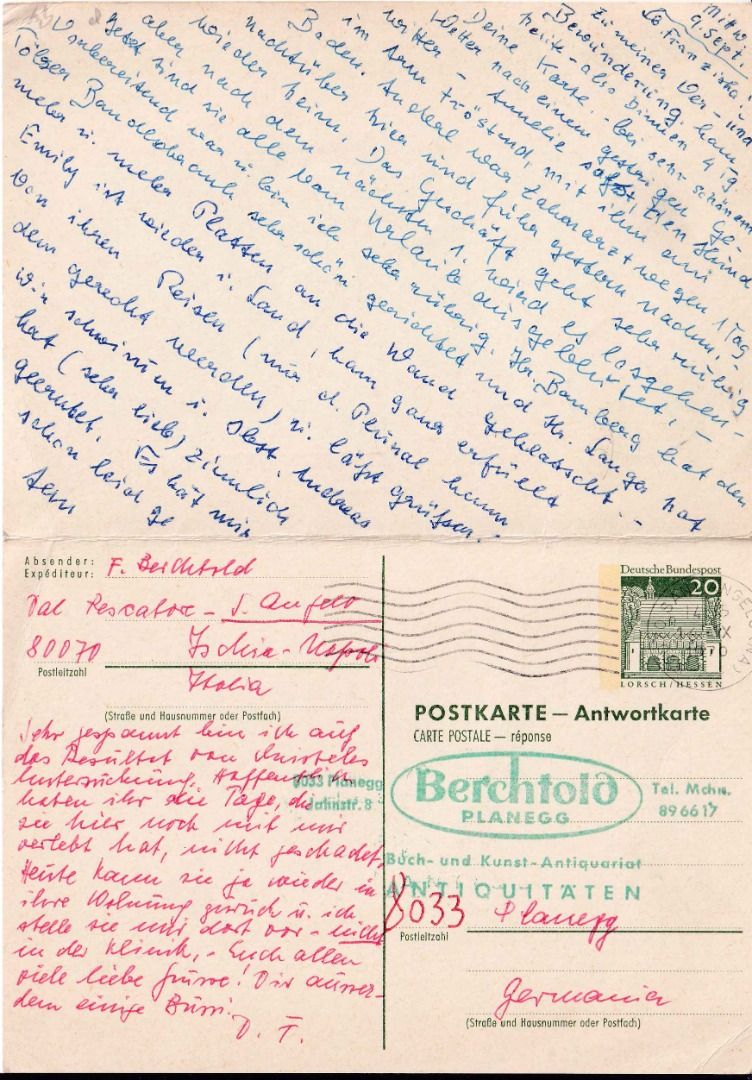 Mittw.
9. Sept.
Lb. Franziska!
zu meiner Ver- und
Bewunderung kam
heute - also binnen 4 Tg
Deine Karte. - bei sehr schönem
Wetter nach einem gestrigen Ge-
witter - Annelie sagt, den Hund
im Arm tröstend, mit ihm am
Boden. Andrea war Zahnarzt wegen 1 Tag
nachtsüber hier und fuhr gestern nachm.
wieder heim. Das Geschäft geht sehr ruhig
aber nach dem nächsten 1. wird es losgehen -
Jetzt sind sie alle vom Urlaub ausgeblutet, -
Vorbereitend war u. bin ich sehr rührig. Hr. Bamberg hat den
Tölzer Bauernschrank sehr schön gerichtet und Hr. Langer hat
mehr u. mehr Platten an die Wand geklatscht. -
Emily ist wieder i. Land, kam ganz erfüllt
von ihren Reisen (nur d. Plural kann
dem gerecht werden) u. läßt grüßen. -
Wir schwimmen i. Obst. Andreas
hat (sehr lieb) ziemlich
geerntet. Es hat mir
schon leid ge
tern
Absender:
Expéditeur:
F. Berchtold
Dal Pescatore - S. Angelo
80070 Ischia - Napoli
Postleitzahl
Italia
(Straße und Hausnummer oder Postfach)
Sehr gespannt bin ich auf
das Resultat von
Untersuchung. Hoffentlich
haben ihr die Tage, die
sie hier noch mit mir
verlebt hat, nicht geschadet.
Heute kann sie ja wieder in
ihre Wohnung zurück u. ich
stelle sie mir dort vor - nicht
in der Klinik. - Euch allen
viele liebe Grüsse! Dir ausser-
dem einige Bussi.
D. F.
8033 Planegg
Jahnstr. 8
Deutsche Bundespost
20
LORSCH/HESSEN
POSTKARTE — Antwortkarte
CARTE POSTALE — réponse
Berchtold
PLANEGG
Tel. Mchn.
896617
Buch- und Kunst-Antiquariat
ANTIQUITÄTEN
8033 Planegg
Postleitzahl
Germania
(Straße und Hausnummer oder Postfach)